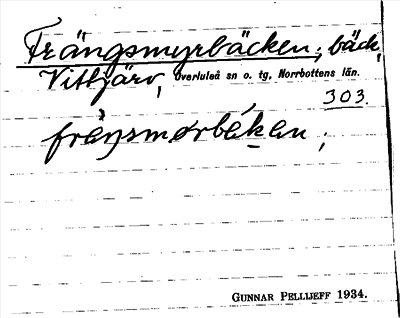 Trängsmyrbäcken; bäck,
Vittjärv, Överluleå sn o. tg, Norrbottens län.
303.
GUNNAR PELLIJEFF 1934.